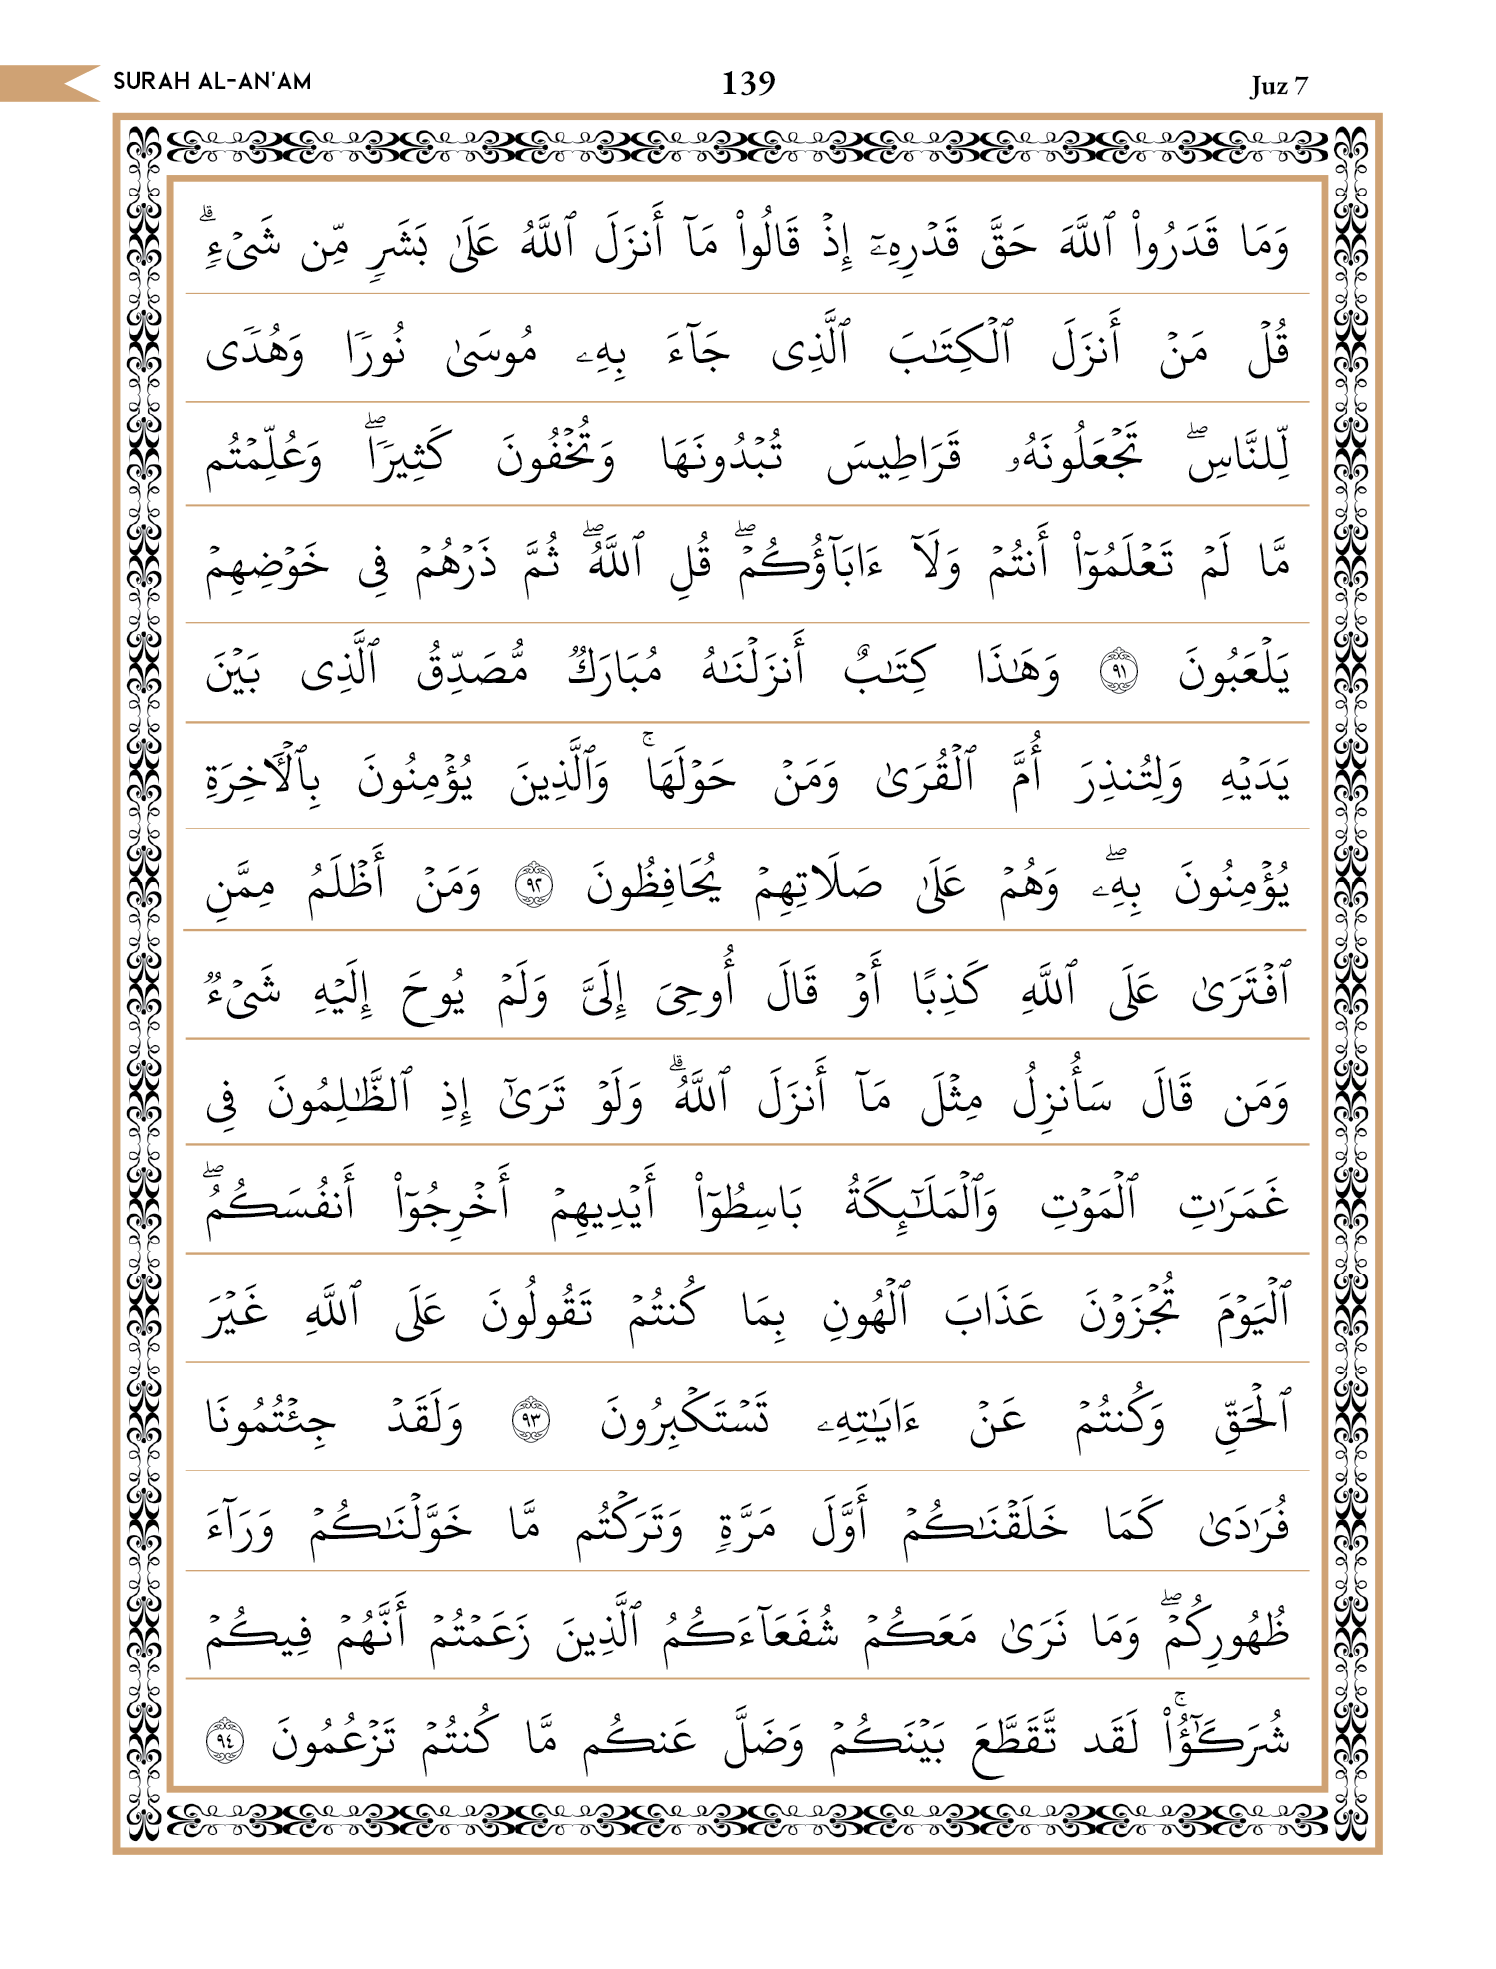 SURAH AL-AN'AM 139 Juz 7
وَمَا قَدَرُوا۟ ٱللَّهَ حَقَّ قَدْرِهِۦٓ إِذْ قَالُوا۟ مَآ أَنزَلَ ٱللَّهُ عَلَىٰ بَشَرٍ مِّن شَىْءٍ ۗ
قُلْ مَنْ أَنزَلَ ٱلْكِتَـٰبَ ٱلَّذِى جَآءَ بِهِۦ مُوسَىٰ نُورًا وَهُدًى
لِّلنَّاسِ ۖ تَجْعَلُونَهُۥ قَرَاطِيسَ تُبْدُونَهَا وَتُخْفُونَ كَثِيرًا ۖ وَعُلِّمْتُم
مَّا لَمْ تَعْلَمُوٓا۟ أَنتُمْ وَلَآ ءَابَآؤُكُمْ ۖ قُلِ ٱللَّهُ ۖ ثُمَّ ذَرْهُمْ فِى خَوْضِهِمْ
يَلْعَبُونَ ٩١ وَهَـٰذَا كِتَـٰبٌ أَنزَلْنَـٰهُ مُبَارَكٌ مُّصَدِّقُ ٱلَّذِى بَيْنَ
يَدَيْهِ وَلِتُنذِرَ أُمَّ ٱلْقُرَىٰ وَمَنْ حَوْلَهَا ۚ وَٱلَّذِينَ يُؤْمِنُونَ بِٱلْـَٔاخِرَةِ
يُؤْمِنُونَ بِهِۦ ۖ وَهُمْ عَلَىٰ صَلَاتِهِمْ يُحَافِظُونَ ٩٢ وَمَنْ أَظْلَمُ مِمَّنِ
ٱفْتَرَىٰ عَلَى ٱللَّهِ كَذِبًا أَوْ قَالَ أُوحِىَ إِلَىَّ وَلَمْ يُوحَ إِلَيْهِ شَىْءٌ
وَمَن قَالَ سَأُنزِلُ مِثْلَ مَآ أَنزَلَ ٱللَّهُ ۗ وَلَوْ تَرَىٰٓ إِذِ ٱلظَّـٰلِمُونَ فِى
غَمَرَٰتِ ٱلْمَوْتِ وَٱلْمَلَـٰٓئِكَةُ بَاسِطُوٓا۟ أَيْدِيهِمْ أَخْرِجُوٓا۟ أَنفُسَكُمُ ۖ
ٱلْيَوْمَ تُجْزَوْنَ عَذَابَ ٱلْهُونِ بِمَا كُنتُمْ تَقُولُونَ عَلَى ٱللَّهِ غَيْرَ
ٱلْحَقِّ وَكُنتُمْ عَنْ ءَايَـٰتِهِۦ تَسْتَكْبِرُونَ ٩٣ وَلَقَدْ جِئْتُمُونَا
فُرَٰدَىٰ كَمَا خَلَقْنَـٰكُمْ أَوَّلَ مَرَّةٍ وَتَرَكْتُم مَّا خَوَّلْنَـٰكُمْ وَرَآءَ
ظُهُورِكُمْ ۖ وَمَا نَرَىٰ مَعَكُمْ شُفَعَآءَكُمُ ٱلَّذِينَ زَعَمْتُمْ أَنَّهُمْ فِيكُمْ
شُرَكَـٰٓؤُا۟ ۚ لَقَد تَّقَطَّعَ بَيْنَكُمْ وَضَلَّ عَنكُم مَّا كُنتُمْ تَزْعُمُونَ ٩٤